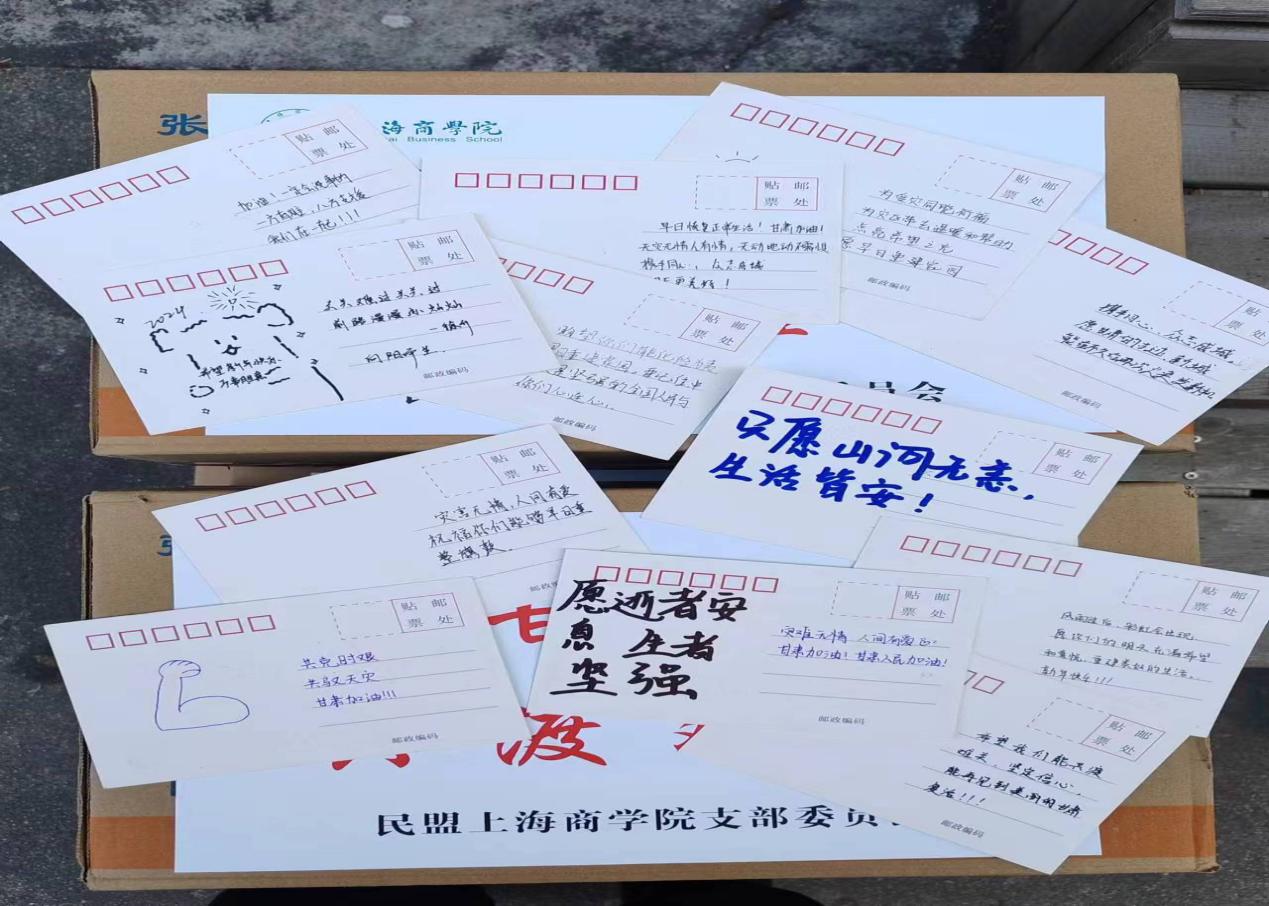 张
海商學院
Business School
贴 邮
票 处
加油！一定会
我们在一起！！！！
贴 邮
票 处
早日恢复正常生活！甘肃加油！
天灾无情人有情，
携手同心，众志成城
更美好！
贴 邮
票 处
为受灾同胞祈福
为灾区带去温暖和帮助
点亮希望之光
早日重建家园
邮政编码
贴 邮
票 处
2024
希望新年快乐
万事胜意
关关难过关关过
前路漫漫亦灿灿
向阳而生
邮政编码
贴 邮
票 处
希望你们能化险为夷
重建家园，要记住
坚强的全国人民与
你们心连心
邮政编码
携手同心、众志成城
邮政编码
员会
贴 邮
票 处
只愿山河无恙，
生活皆安！
贴 邮
票 处
灾害无情，人间有爱
祝福你们能够早日重
整旗鼓。
贴 邮
票 处
共克时艰
共驭天灾
甘肃加油！！！
邮政编码
愿逝者安
息 生者
坚强
贴 邮
票 处
灾难无情 人间有爱
甘肃加油！甘肃人民加油！
邮政编码
贴 邮
票 处
风雨过后，彩虹会出现
愿你们的明天充满希望
和喜悦，重建美好的生活。
新年快乐！！！
贴 邮
票 处
希望我们能共渡
难关，坚定信心，
能再见到美丽的甘肃
复活！！！
邮政编码
甘
渡
民盟上海商学院支部委员